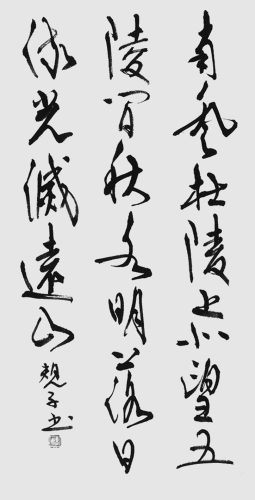 南登杜陵上北望五
陵間秋水明落日
流光滅遠山
子书